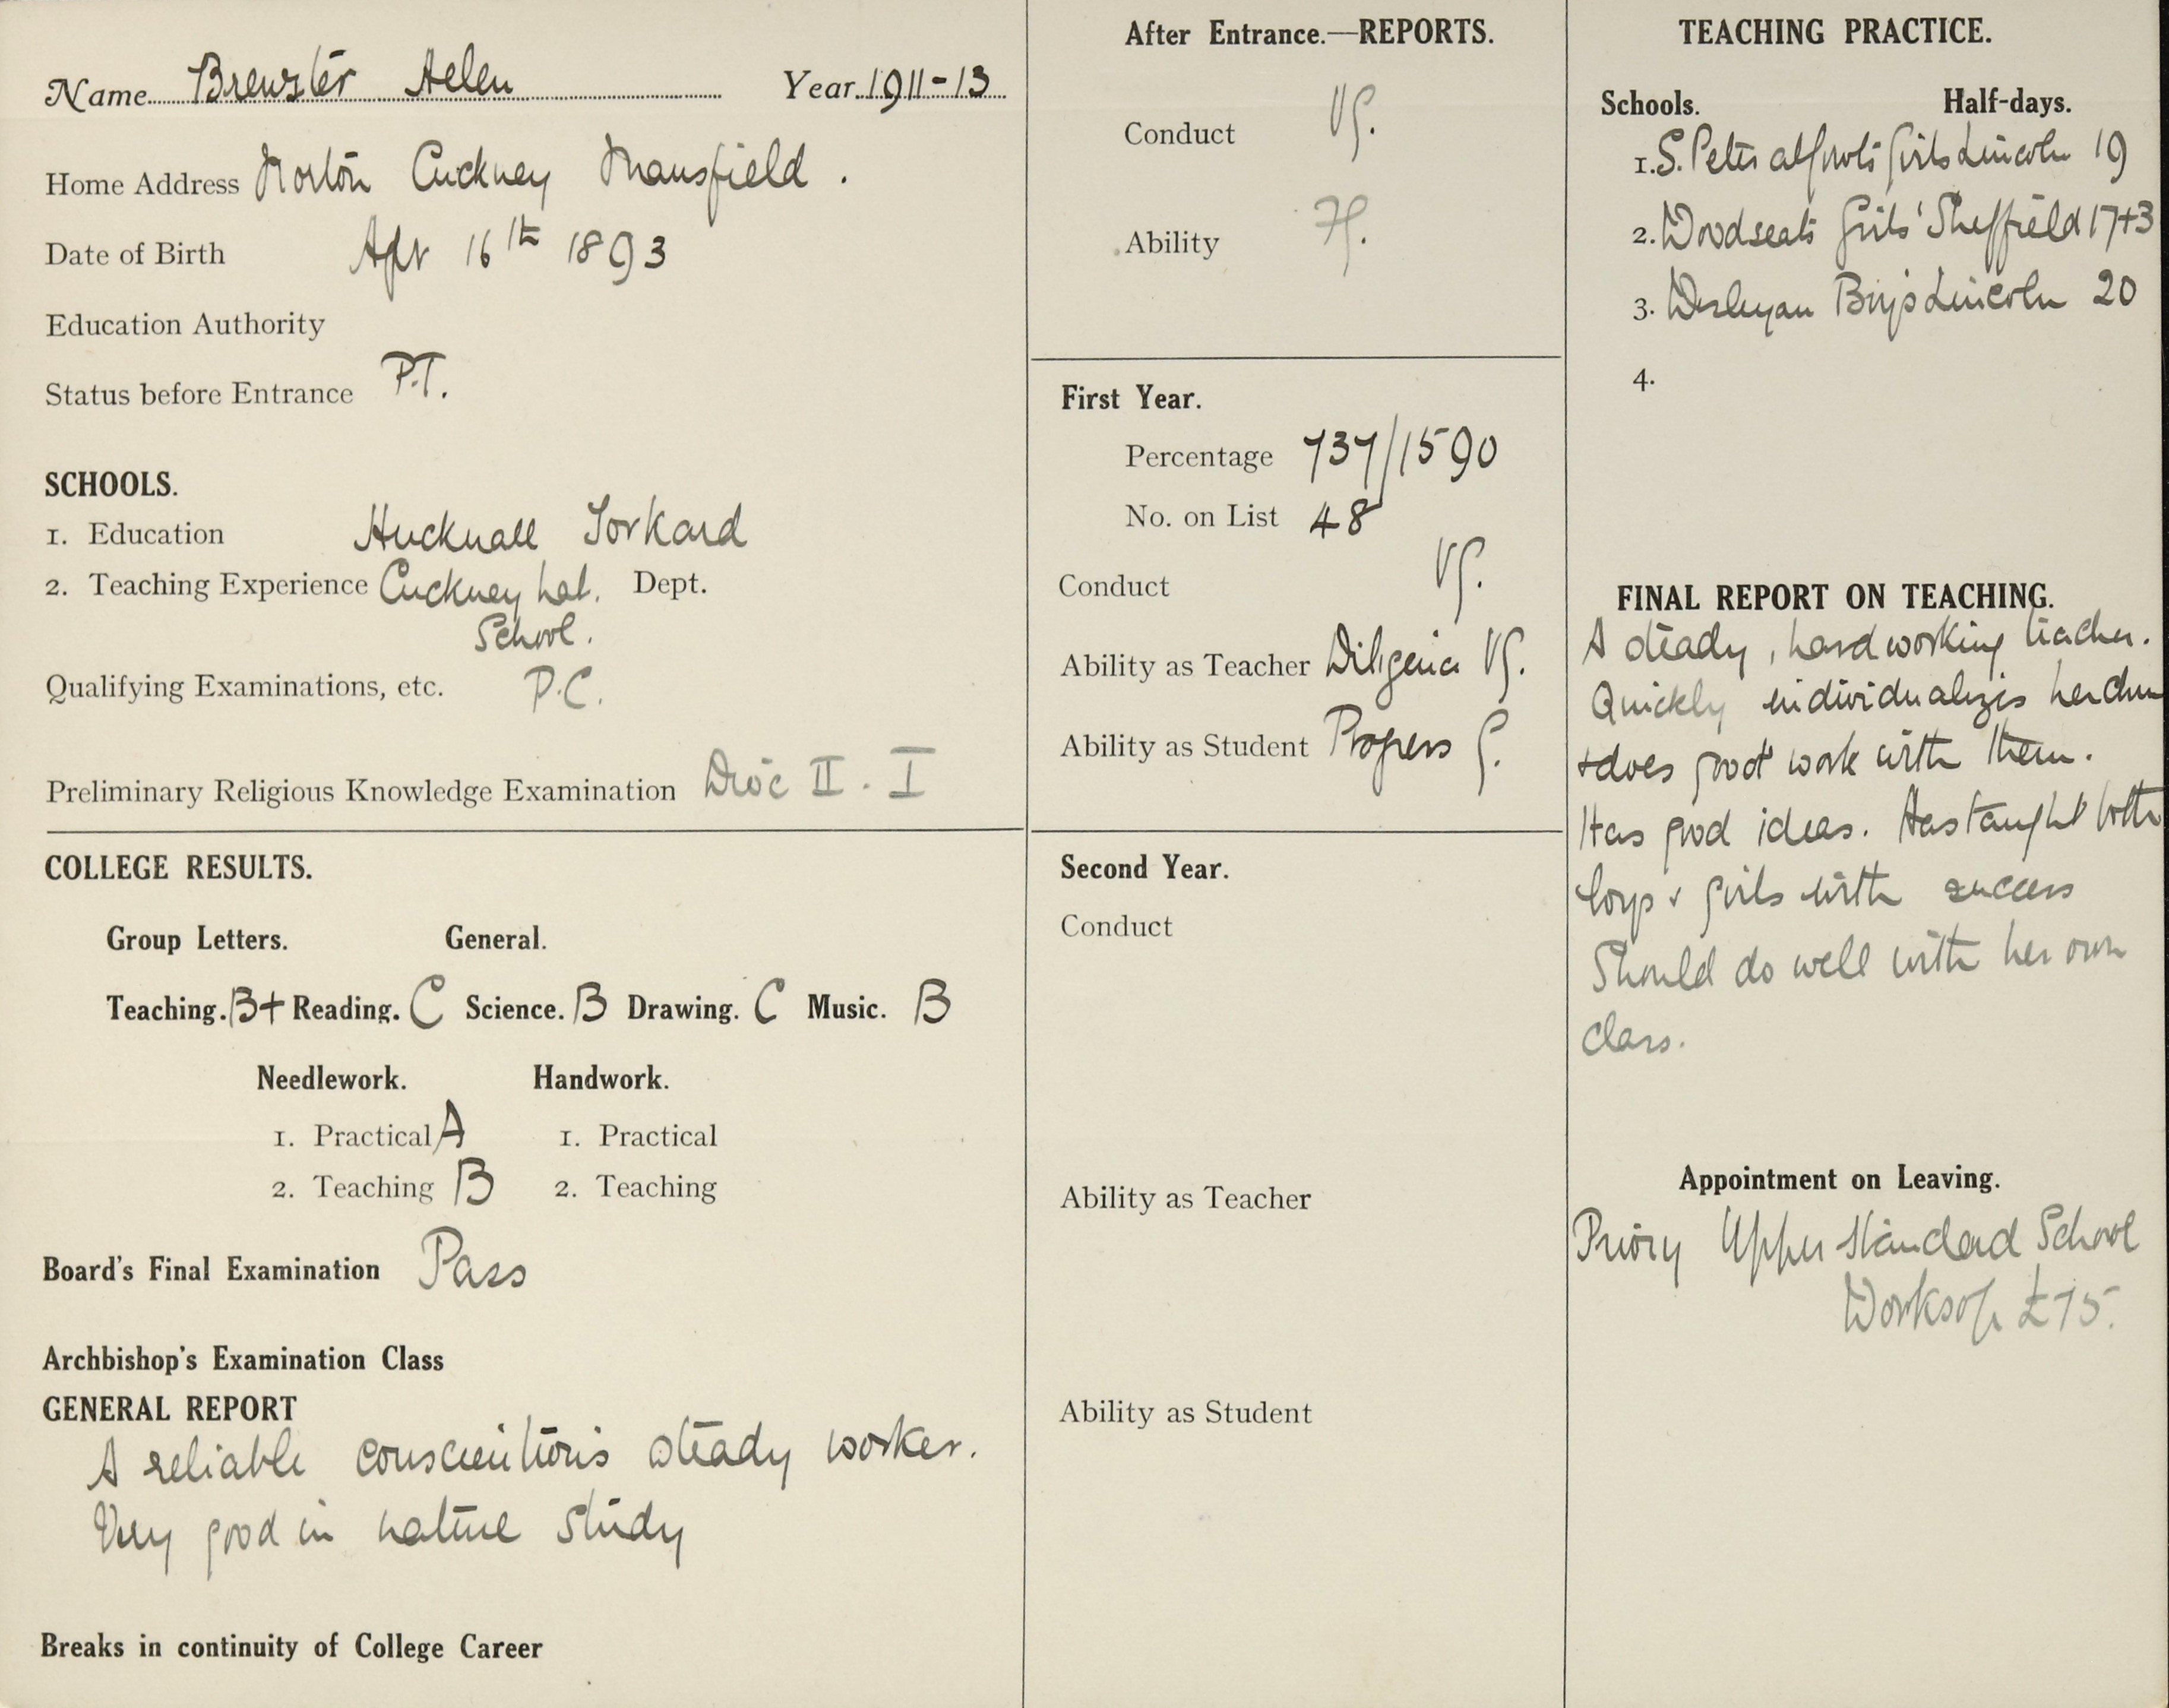 Name Brewster Helen Year 1911-13
Home Address Norton Cuckney Mansfield .
Date of Birth Apr 16th 1893
Education Authority
Status before Entrance P.T.
SCHOOLS.
1. Education Hucknall Torkard
2. Teaching Experience Cuckney Nat. Dept.
School.
Qualifying Examinations, etc. P.C.
Preliminary Religious Knowledge Examination Dioc II . I
COLLEGE RESULTS.
Group Letters. General.
Teaching. B+ Reading. C Science. B Drawing. C Music. B
Needlework. Handwork.
1. Practical A 1. Practical
2. Teaching B 2. Teaching
Board's Final Examination Pass
Archbishop's Examination Class
GENERAL REPORT
A reliable conscientious steady worker.
Very good in nature study
Breaks in continuity of College Career
After Entrance.—REPORTS.
Conduct VG.
Ability
First Year.
Percentage 737/1590
No. on List 48
Conduct VG.
Ability as Teacher Diligence VG.
Ability as Student Progress G.
Second Year.
Conduct
Ability as Teacher
Ability as Student
TEACHING PRACTICE.
Schools. Half-days.
1. S. Peter at Gowts Girls Lincoln 19
2. Woodseats Girls' Sheffield 17+3
3. Wesleyan Boys Lincoln 20
4.
FINAL REPORT ON TEACHING.
A steady, hardworking teacher.
Quickly individualizes her chn
+ does good work with them.
Has good ideas. Has taught both
boys + girls with success
Should do well with her own
class.
Appointment on Leaving.
Priory Upper Standard School
Worksop £75.